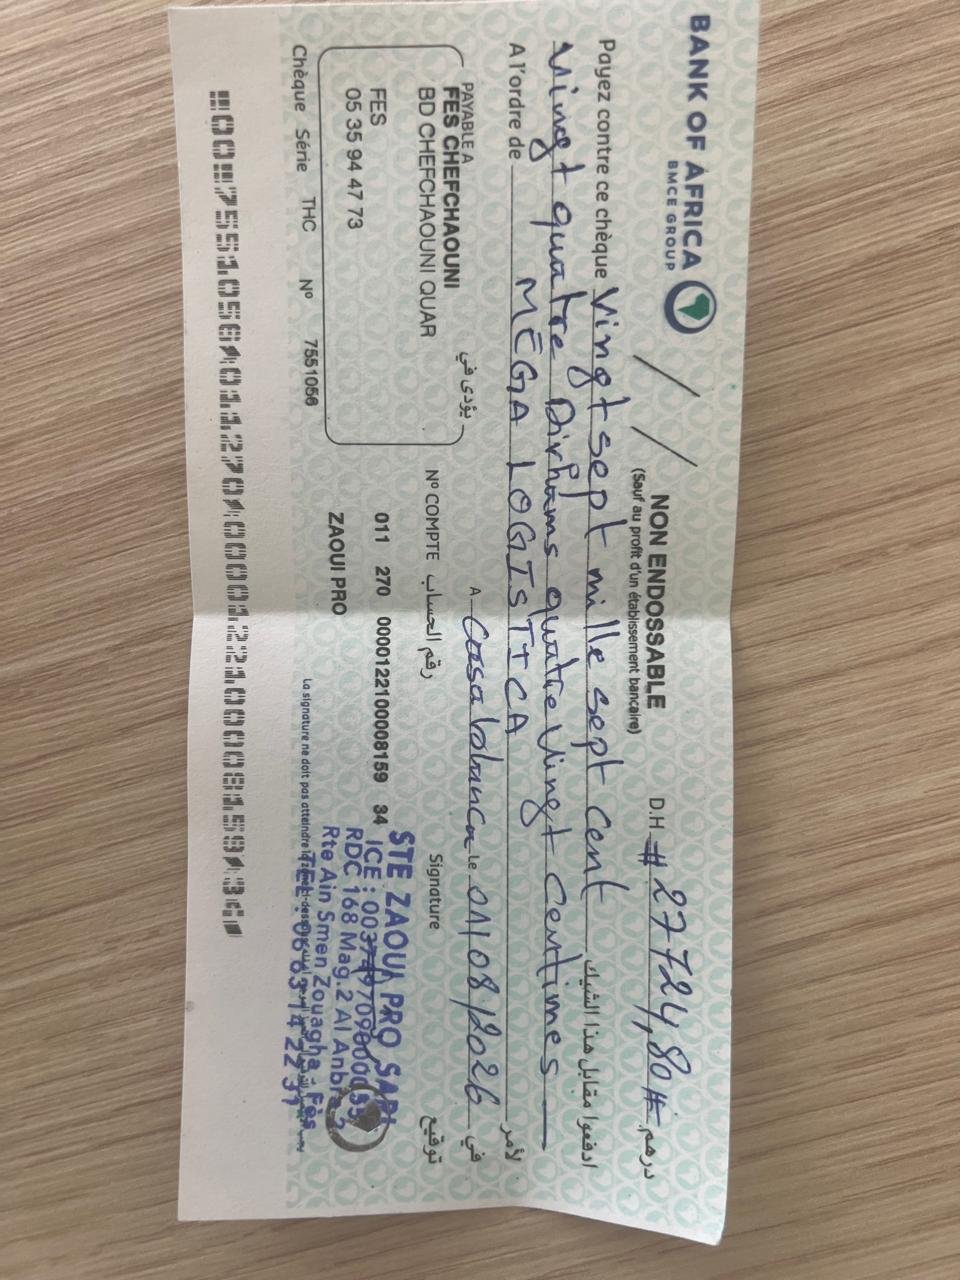 BANK OF AFRICA
BMCE GROUP
NON ENDOSSABLE
(Sauf au profit d'un établissement bancaire)
D.H # 27724,80 # درهم
Payez contre ce chèque Vingt sept mille sept cent ادفعوا مقابل هذا الشيك
vingt quatre Dirhams quatre vingt centimes
A l'ordre de MEGA LOGISTICA لأمر
A Casablanca le 01/08/2026 في
PAYABLE A يؤدى في
FES CHEFCHAOUNI
BD CHEFCHAOUNI QUAR
FES
05 35 94 47 73
N° COMPTE رقم الحساب
011 270 0000122100008159 34
ZAOUI PRO
Signature توقيع
STE ZAOUI PRO SARL
RDC 168 Mag.2 Al
Rte Ain Smen Zouagha - Fès
La signature ne doit pas atteindre
Chèque Série THC N° 7551056